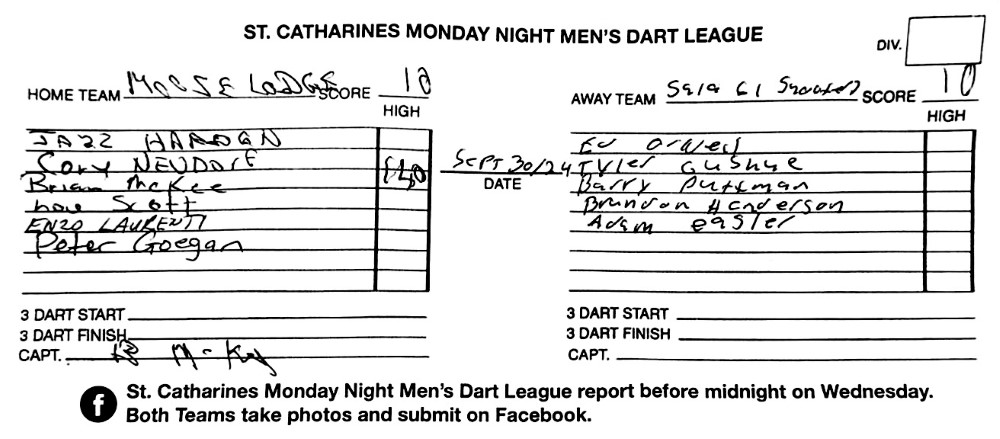 ST. CATHARINES MONDAY NIGHT MEN'S DART LEAGUE
DIV.
HOME TEAM MOOSE LODGE SCORE 10
HIGH
AWAY TEAM SCORE 10
HIGH
JAZZ HARDEN
Cory NEUDORF
Brian McKee 140
Scott
ENZO LAURENTI
Peter Goegan
SEPT 30/24
DATE
Ed
Tyler Gushue
Barry Puttman
Brandon Henderson
Adam easter
3 DART START
3 DART FINISH
CAPT. B McKee
3 DART START
3 DART FINISH
CAPT.
f St. Catharines Monday Night Men's Dart League report before midnight on Wednesday.
Both Teams take photos and submit on Facebook.